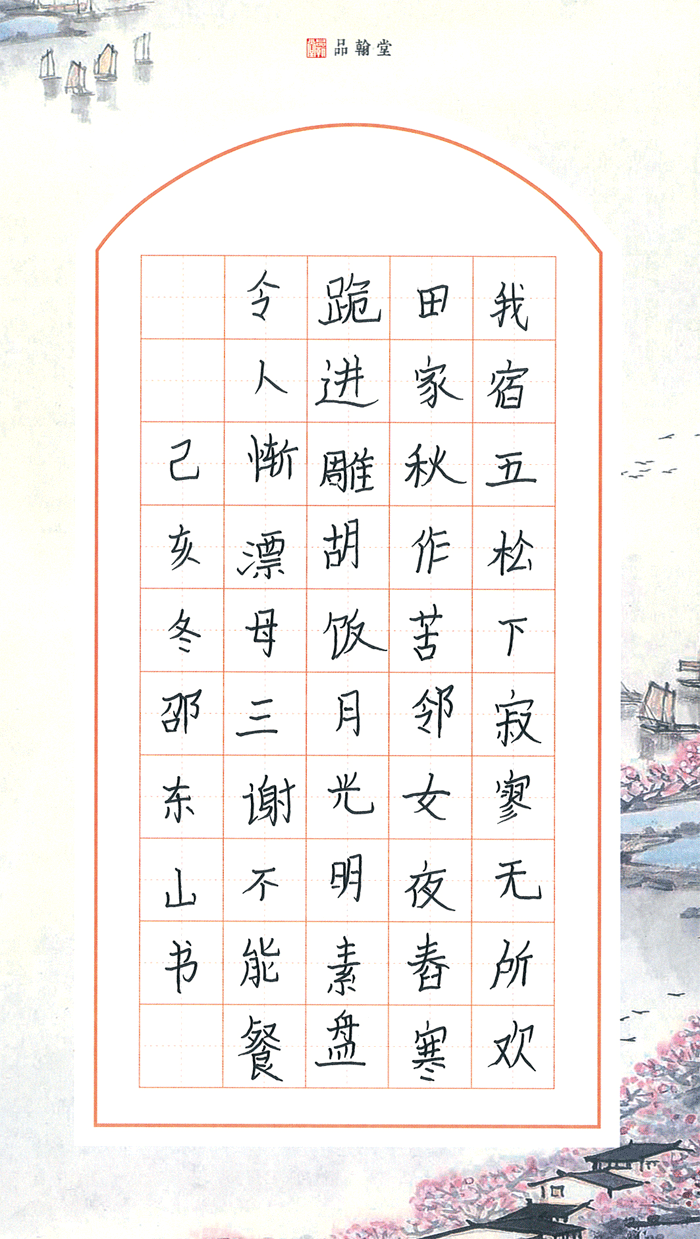 品翰堂
我宿五松下寂寥无所欢
田家秋作苦邻女夜舂寒
跪进雕胡饭月光明素盘
令人惭漂母三谢不能餐
己亥冬邵东山书